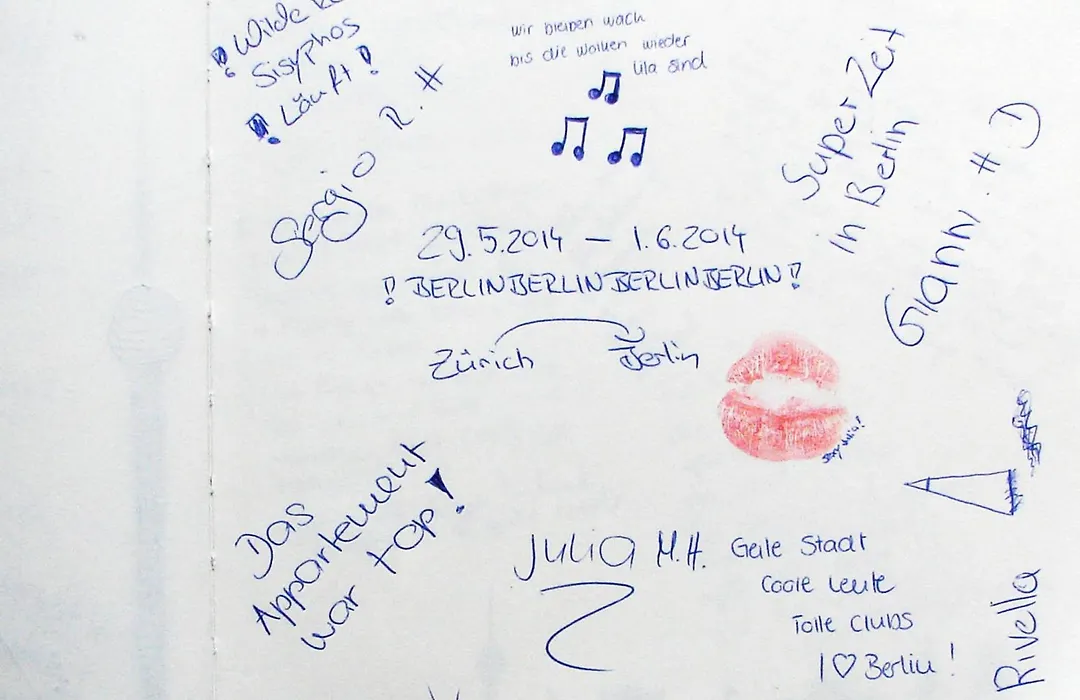 ! Wilde
Sisyphos
! Läuft !
Sergio R. H
wir bleiben wach
bis die wolken wieder
lila sind
Super Zeit
in Berlin
Giann . H :)
29.5.2014 – 1.6.2014
! BERLINBERLINBERLINBERLIN !
Zürich Berlin
Sexy Julia!
Das
Appartement
war top!
Julia M.H.
Geile Stadt
Coole Leute
Tolle Clubs
I ♡ Berlin !
Rivella